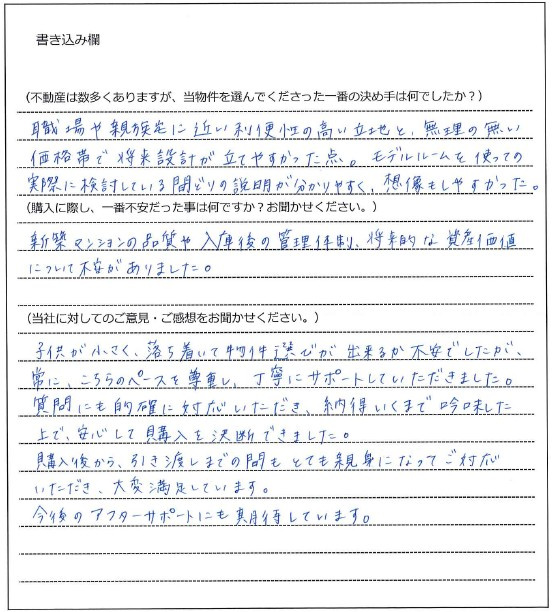 書き込み欄
(不動産は数多くありますが、当物件を選んでくださった一番の決め手は何でしたか?)
職場や親族宅に近い利便性の高い立地と、無理の無い
価格帯で将来設計が立てやすかった点。モデルルームを使っての
実際に検討している間どりの説明が分かりやすく、想像もしやすかった。
(購入に際し、一番不安だった事は何ですか?お聞かせください。)
新築マンションの品質や入庫後の管理体制、将来的な資産価値
について不安がありました。
(当社に対してのご意見・ご感想をお聞かせください。)
子供が小さく、落ち着いて物件選びが出来るか不安でしたが、
常に、こちらのペースを尊重し、丁寧にサポートしていただきました。
質問にも的確に対応いただき、納得いくまで吟味した
上で、安心して購入を決断できました。
購入後から、引き渡しまでの間もとても親身になってご対応
いただき、大変満足しています。
今後のアフターサポートにも期待しています。